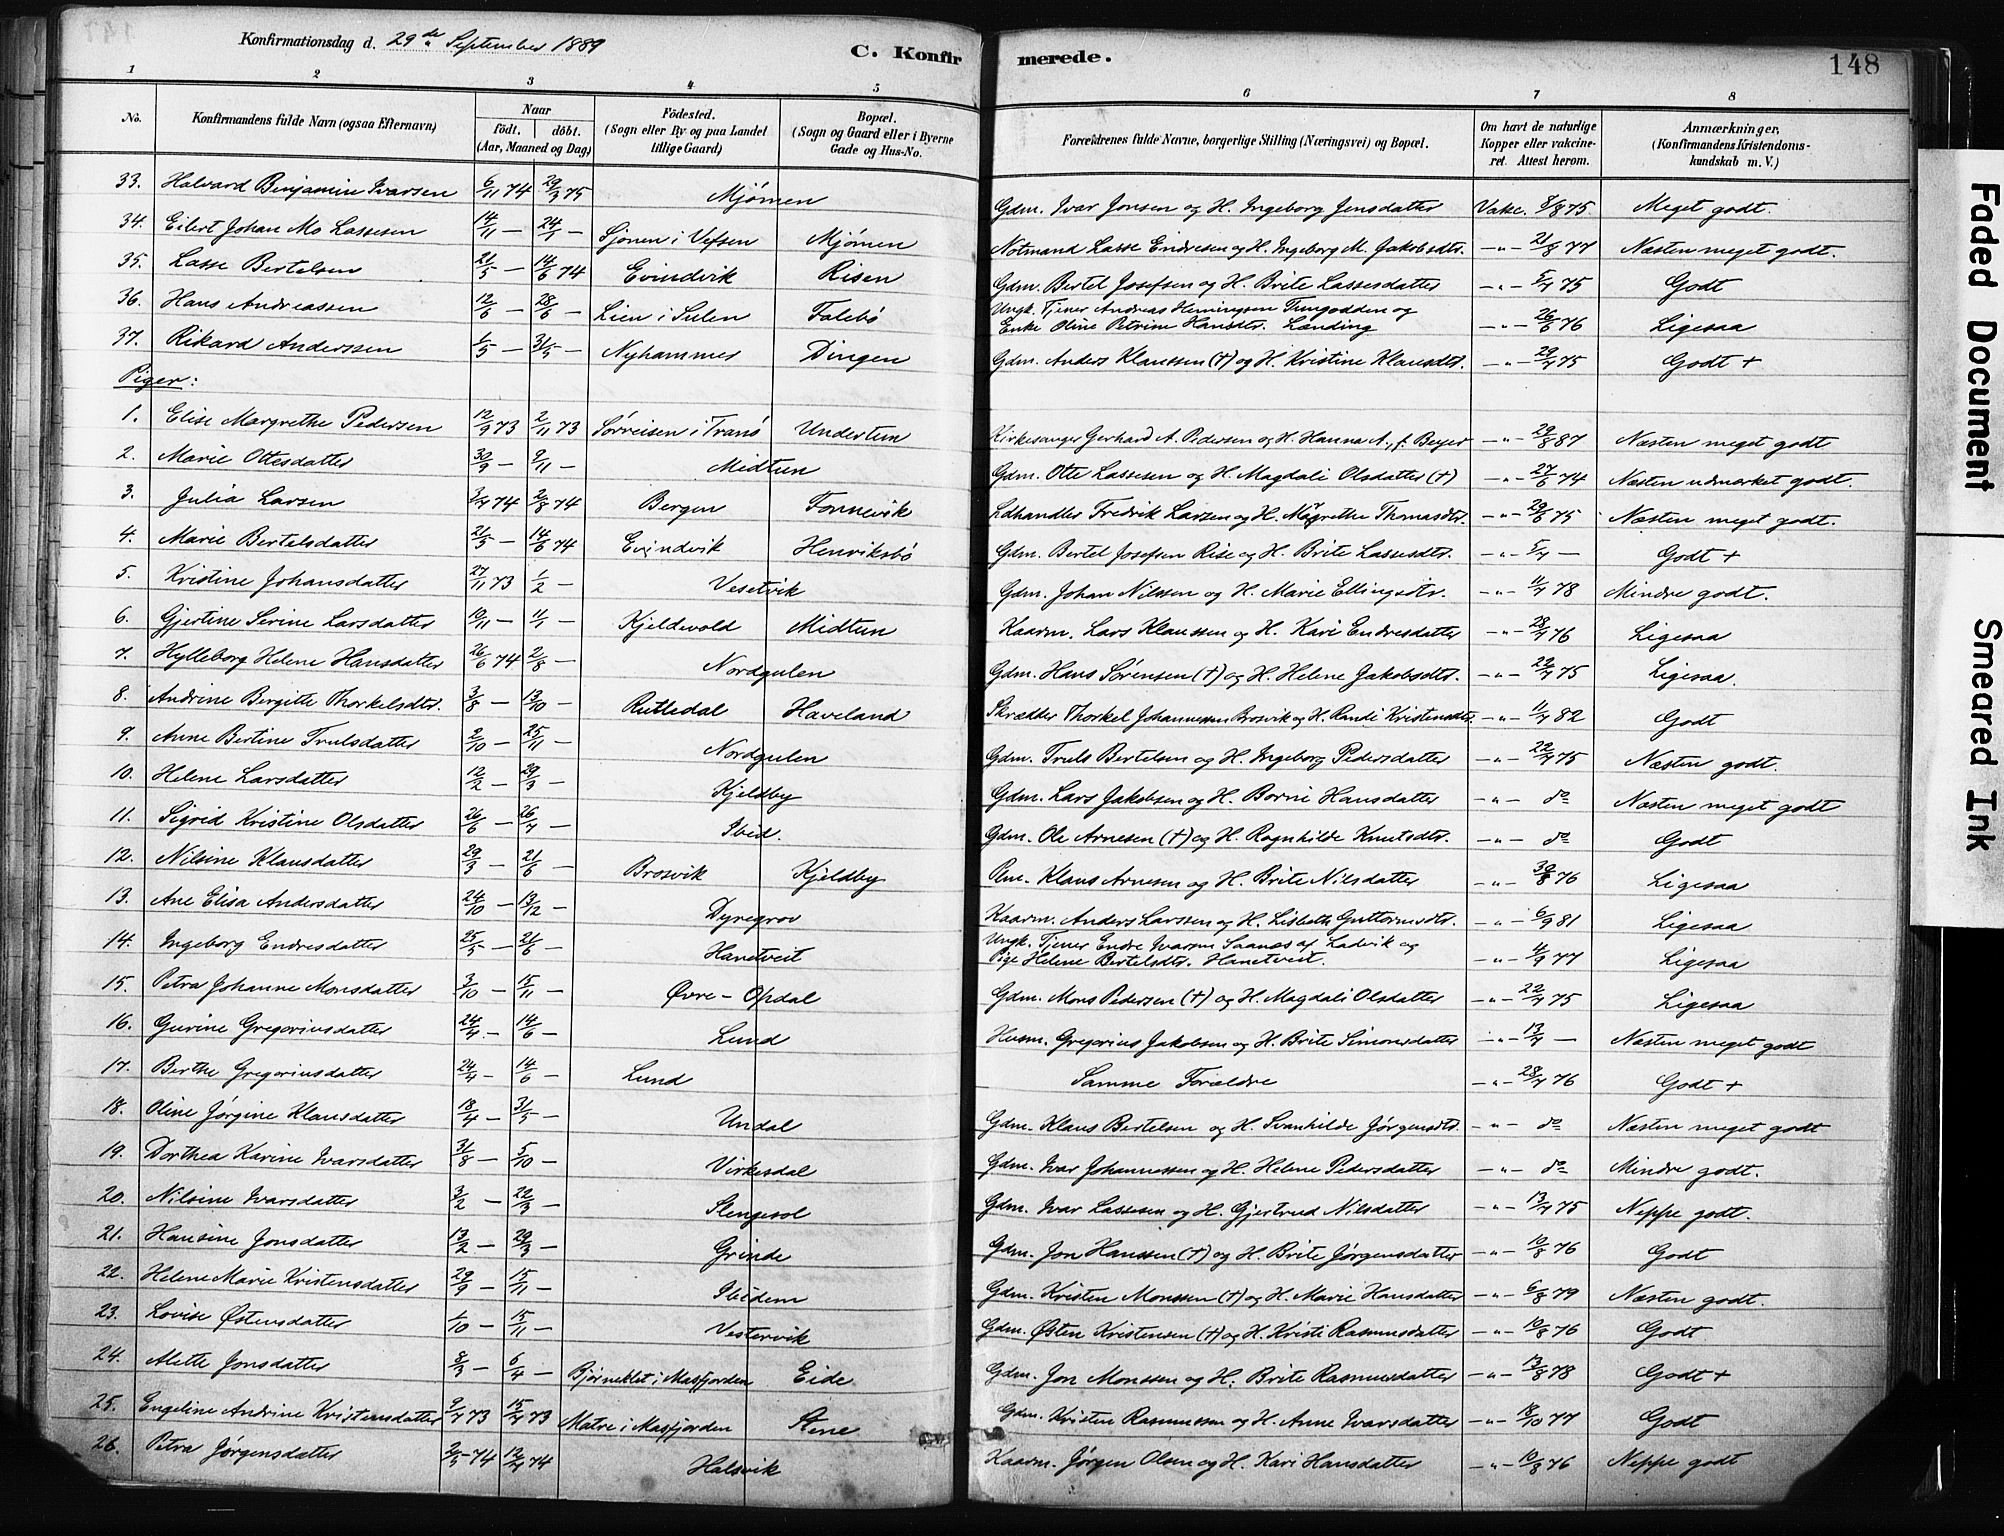 Konfirmationsdag d. 29de September 1889
C. Konfirmerede.
148
1 2 3 4 5 6 7 8
No. Konfirmandens fulde Navn (ogsaa Efternavn) Naar födt. döbt. (Aar, Maaned og Dag) Födested. (Sogn eller By og paa Landet tillige Gaard) Bopæl. (Sogn og Gaard eller i Byerne Gade og Hus-No. Forældrenes fulde Navne, borgerlige Stilling (Næringsvei) og Bopæl. Om havt de naturlige Kopper eller vakcineret. Attest herom. Anmærkninger, (Konfirmandens Kristendomskundskab m. V.)
33. Halvard Benjamin Ivarsen 6/11 74 29/3 75 Mjømen Gdm. Ivar Jonsen og H. Ingeborg Jensdatter Vakc. 8/8 75 Meget godt.
34. Eilert Johan Mo Lassesen 14/11 — 24/1 — Sjonen i Vefsen Mjømen Notmand Lasse Endresen og H. Ingeborg M. Jakobsdtr. —"— 21/8 77 Næsten meget godt.
35. Lasse Bertelsen 21/5 — 14/6 74 Evindvik Risen Gdm. Bertel Josefsen og H. Brite Lassesdatter —"— 5/4 75 Godt
36. Hans Andreassen 12/6 — 28/6 — Lien i Sulen Talebø Ungk. Tjener Andreas Henningsen Tungodden og
Enke Oline Petrine Hansdtr. Landing —"— 26/6 76 Ligesaa
37. Rikard Anderssen 1/5 — 31/5 — Nyhammer Dingen Gdm. Anders Klaussen (+) og H. Kristine Klausdtr. —"— 29/4 75 Godt +
Piger:
1. Elise Margrethe Pedersen 12/9 73 2/11 73 Sørreisen i Tranø Undertun Kirkesanger Gerhard A. Pedersen og H. Hanna A., f. Beyer —"— 29/8 87 Næsten meget godt
2. Marie Ottesdatter 30/9 — 9/11 — Midtun Gdm. Otte Lassesen og H. Magdali Olsdatter (+) —"— 27/6 74 Næsten udmærket godt.
3. Julia Larsen 3/4 74 2/8 74 Bergen Tonnevik Ldhandler Fredrik Larsen og H. Mgrethe Thomasdtr. —"— 29/6 75 Næsten meget godt.
4. Marie Bertelsdatter 21/5 — 14/6 74 Evindvik Henriksbø Gdm. Bertel Josefsen Rise og H. Brite Lassesdtr. —"— 5/4 — Godt +
5. Kristine Johansdatter 27/11 73 1/2 — Vesetvik Gdm. Johan Nilssen og H. Marie Ellingsdtr. —"— 11/4 78 Mindre godt.
6. Gjertine Serine Larsdatter 19/11 — 4/1 — Kjeldevold Midtun Kaarm. Lars Klaussen og H. Kari Endresdatter —"— 28/4 76 Ligesaa
7. Hylleborg Helene Hansdatter 26/6 74 2/8 — Nordgulen Gdm. Hans Sørensen (+) og H. Helene Jakobsdtr. —"— 22/4 75 Ligesaa.
8. Andrine Bergitte Thorkelsdtr. 3/8 — 13/10 — Rutledal Haveland Skrædder Thorkel Johannessen Brosvik og H. Randi Kristensdtr. —"— 11/4 82 Godt
9. Anne Bertine Trulsdatter 2/10 — 25/11 — Nordgulen Gdm. Truls Bertelsen og H. Ingeborg Pedersdatter —"— 22/4 75 Næsten godt.
10. Helene Larsdatter 12/2 — 29/3 — Kjeldby Gdm. Lars Jakobsen og H. Borni Hansdatter —"— do Næsten meget godt
11. Sigrid Kristine Olsdatter 26/6 — 26/7 — Ibid. Gdm. Ole Arnesen (+) og H. Ragnhilde Knutsdtr. —"— do Godt
12. Nilsine Klausdatter 29/3 — 21/6 — Brosvik Kjeldby Klaus Arnesen og H. Brite Nilsdatter —"— 30/8 76 Ligesaa
13. Ane Elisa Andersdatter 24/10 — 13/12 — Dyregrov Kaarm. Anders Larssen og H. Lisbeth Guttormsdtr. —"— 6/9 81 Ligesaa
14. Ingeborg Endresdatter 25/5 — 21/6 — Hantveit Ungk. Tjener Endre Ivarsen Saanes af Ladvik og
Pige Helene Bertelsdtr. Hanetveit. —"— 4/9 77 Ligesaa
15. Petra Johanne Monsdatter 3/10 — 15/11 — Øvre-Opdal Gdm. Mons Pedersen (+) og H. Magdali Olsdatter —"— 22/4 75 Ligesaa
16. Gurine Gregoriusdatter 24/4 — 14/6 — Lund Husm. Gregorius Jakobsen og H. Brite Simonsdatter —"— 13/4 — Næsten meget godt
17. Berthe Gregoriusdatter 24/4 — 14/6 — Lund Samme Forældre —"— 28/4 76 Godt +
18. Oline Jørgine Klausdatter 18/4 — 31/5 — Undal Gdm. Klaus Bertelsen og H. Svanhilde Jørgensdtr. —"— do Næsten meget godt
19. Dorthea Karine Ivarsdatter 31/8 — 5/10 — Virkesdal Gdm. Ivar Johannessen og H. Helene Pedersdatter —"— do Mindre godt.
20. Nilsine Ivarsdatter 3/2 — 22/3 — Slengesol Gdm. Ivar Lassesen og H. Gjertrud Nilsdatter —"— 13/4 75 Neppe godt.
21. Hansine Jonsdatter 13/2 — 29/3 — Grinde Gdm. Jon Hanssen (+) og H. Brite Jørgensdatter —"— 19/8 76 Godt
22. Helene Marie Kristensdatter 29/9 — 15/11 — Ibidem Gdm. Kristen Monssen (+) og H. Marie Hansdatter —"— 6/8 79 Næsten godt.
23. Lovise Østensdatter 1/10 — 15/11 — Vestervik Gdm. Østen Kristensen (+) og H. Kristi Rasmusdatter —"— 19/8 76 Godt
24. Alette Jonsdatter 8/3 — 6/4 — Bjørneklet i Masfjorden Eide Gdm. Jon Monssen og H. Brite Rasmusdatter —"— 13/8 78 Godt +
25. Engeline Andrine Kristensdatter 2/4 73 15/4 73 Matre i Masfjorden Stene Gdm. Kristen Rasmussen og H. Anne Ivarsdatter —"— 18/10 77 Godt
26. Petra Jørgensdatter 2/5 74 12/4 74 Halsvik Kaarm. Jørgen Olsen og H. Kari Hansdatter —"— 19/8 76 Neppe godt
Faded Document
Smeared Ink